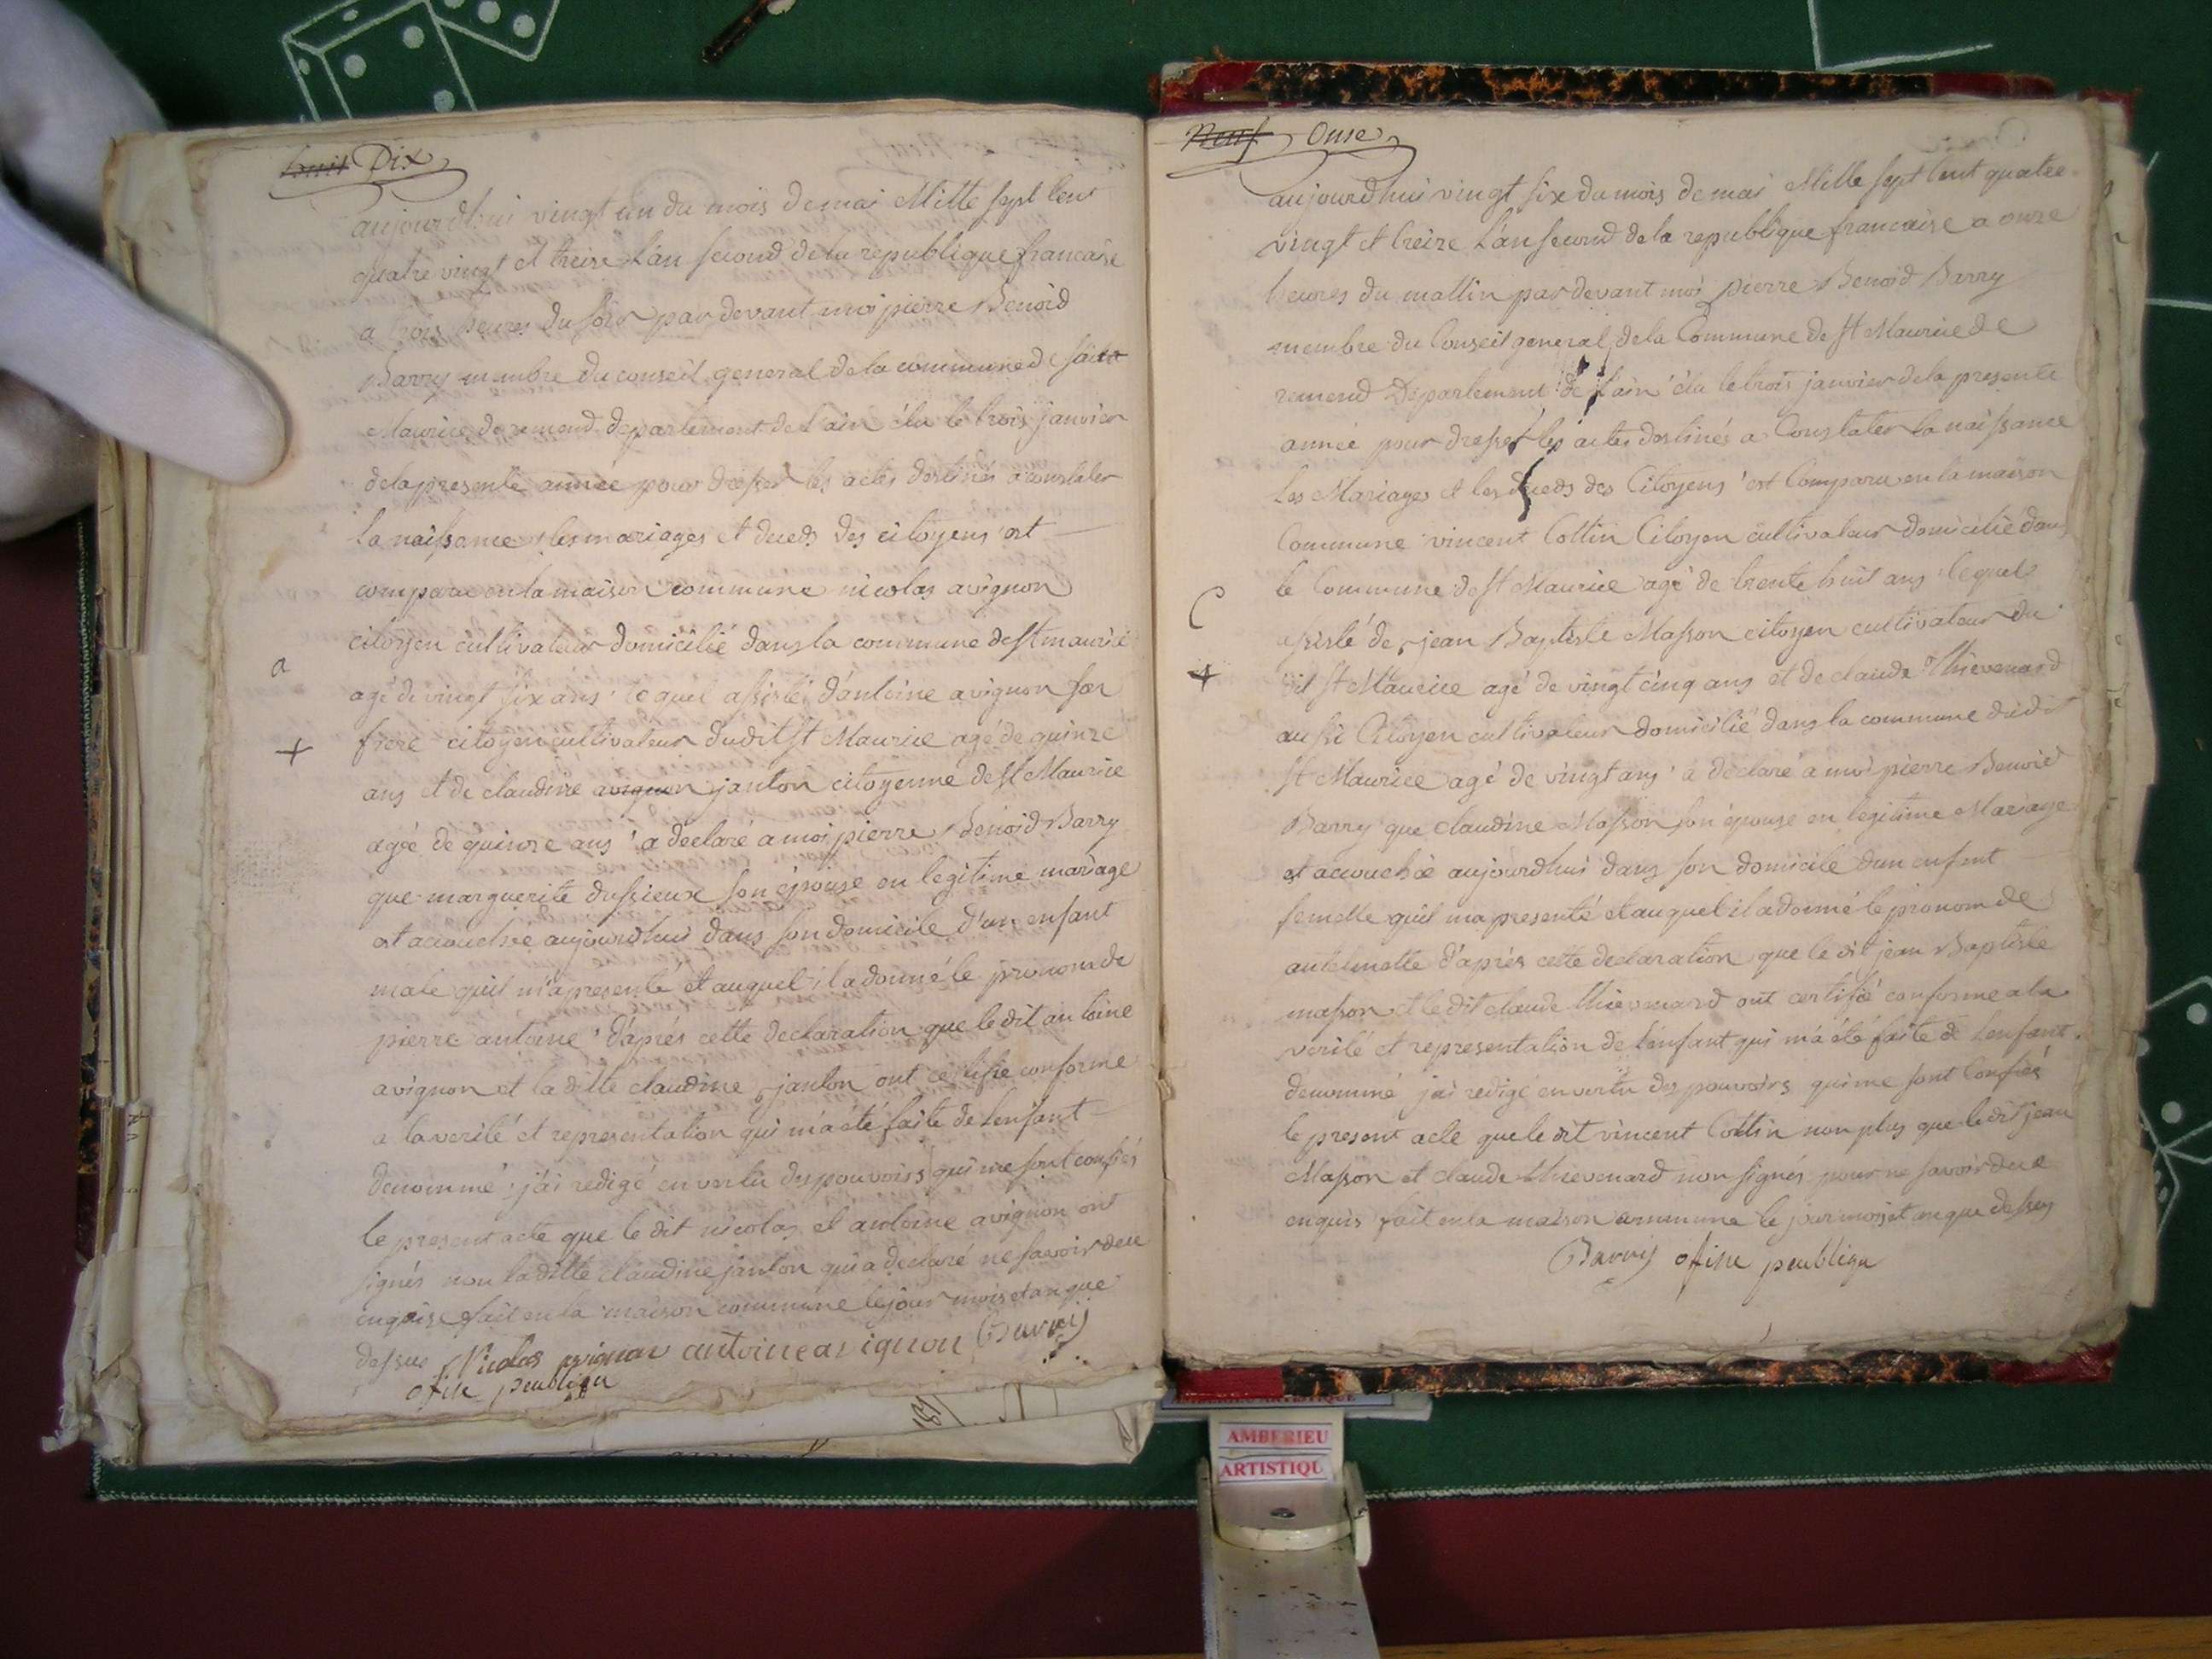 huit Dix
aujourdhui vingt un du mois de mai Mille sept Cent
quatre vingt et treize L'an second de la republique francaise
a trois heures du soir par devant moi pierre Benoid
Barry membre du conseil general de la commune de saint
Maurice de remend departement de L'ain élu le trois janvier
de la presente année pour dresser les actes destinés a constater
La naissance les mariages et deceds des citoyens est
comparu en la maison commune nicolas avignon
citoyen cultivateur domicilié dans la commune de st maurice
a
agé de vingt six ans le quel assisté d'antoine avignon son
frere citoyen cultivateur dudit st Maurice agé de quinze
+
ans et de claudine avignon janton citoyenne de st Maurice
agée de quinze ans a declaré a moi pierre Benoid Barry
que marguerite dussieux son épouse en legitime mariage
est accouchée aujourdhui dans son domicile d'un enfant
male quil m'a presenté et auquel il a donné le pronom de
pierre antoine d'aprés cette declaration que le dit antoine
avignon et la ditte claudine janton ont certifie conforme
a la verité et representation qui m'a été faite de Lenfant
denommé j'ai redigé en vertu des pouvoirs qui me sont confiés
le present acte que le dit nicolas et antoine avignon ont
signés non la ditte claudine janton qui a declaré ne savoir de ce
enquise fait en la maison commune le jour mois et an que
dessus Nicolas avignon antoine avignon Barry
ofise peubliqu
Neuf Onse
aujourdhui vingt six du mois de mai Mille sept Cent quatre
vingt et treize L'an second de la republique francaise a onze
heures du mattin par devant moi pierre Benoid Barry
membre du Conseil general de la Commune de st Maurice de
remend Departement de L'ain élu le trois janvier de la presente
année pour dresser les actes destinés a Constater la naissance
Les Mariages et les deceds des Citoyens est Comparu en la maison
Commune vincent Cottin Citoyen cultivateur domicilié dans
le Commune de st Maurice agé de trente huit ans lequel
C
assisté de jean Baptiste Masson citoyen cultivateur du
+
dit st Maurice agé de vingt cinq ans et de claude Thievenard
aussi Citoyen cultivateur domicilié dans la commune dudit
st Maurice agé de vingt ans a declaré a moi pierre Benoid
Barry que claudine Masson son épouse en legitime Mariage
est accouchée aujourdhui dans son domicile dun enfent
femelle quil ma presenté et auquel il a donné le pronom de
antelmette d'aprés cette declaration que le dit jean Baptiste
masson et le dit claude thievenard ont certifié conforme a la
verité et representation de L'enfant qui m'a été faite de Lenfant
denommé jai redigé en vertu des pouvoirs qui me sont Confiés
le present acte que le dit vincent Cottin non plus que le dit jean
Masson et claude thievenard non signés pour ne savoir de ce
enquis fait en la maison commune le jour mois et an que dessus
Barry ofise peubliqu
AMBERIEU
ARTISTIQU